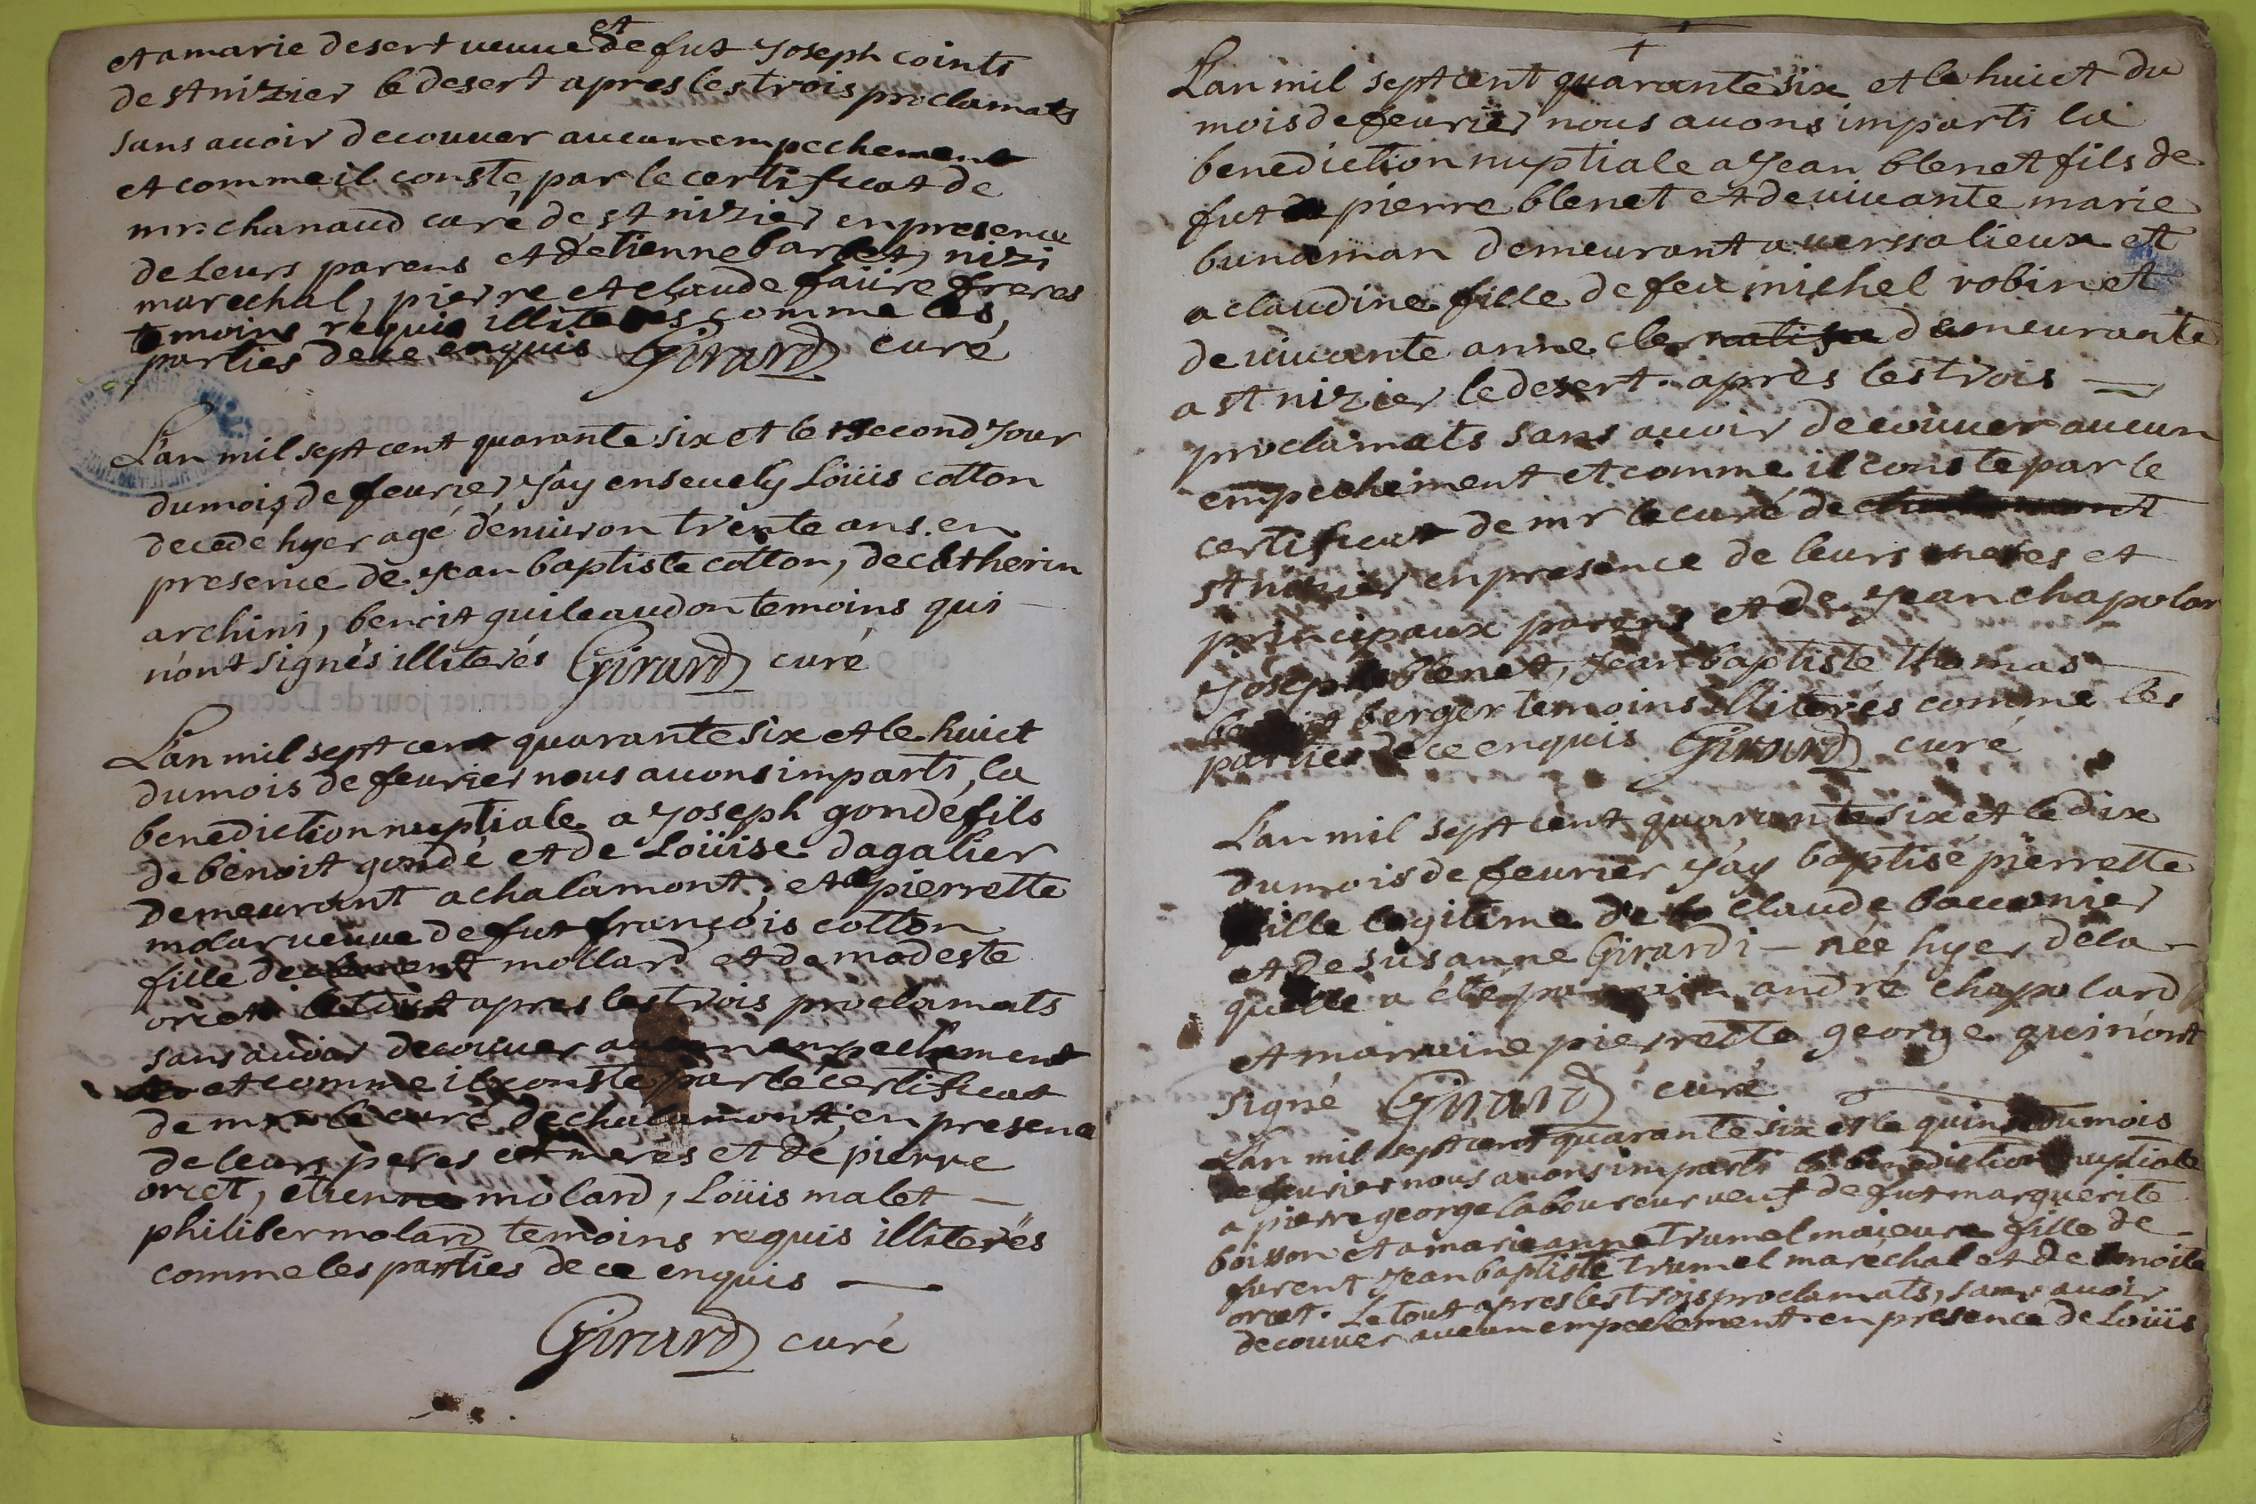 et
et a marie desert veuue de fut Joseph cointi
de st nizier le desert apres les trois proclamats
sans auoir decouuer aucun empechement
et comme il conste par le certificat de
mr chanaud curé de st nizier en presence
de leurs parens et d'etienne barbet, nizi
marechal, pierre et claude faüre freres
temoins requis illiterés comme les,
parties de ce enquis Girard curé
L'an mil sept cent quarante six et le second Jour
du mois de feurier J'ay enseuely Loüis cotton
decedé hyer agé d'enuiron trente ans. en
presence de Jean baptiste cotton, de catherin
archini, benoit guileaudon temoins qui
n'ont signés illiterés Girard curé
L'an mil sept cent quarante six et le huict
du mois de feurier nous auons imparti la
benediction nuptiale a Joseph gondé fils
de benoit gondé et de Loüise dagalier
demeurant a chalamont, et a pierrette
molar veuue de fut françois cotton
fille de clement mollard et de modeste
orcet le tout apres les trois proclamats
sans auoir decouuer aucun empechement
et comme il conste par le certificat
de mr le curé de chalamont, en presence
de leurs peres et meres et de pierre
orcet, etienne molard, Loüis malet
philiber molard temoins requis illiterés
comme les parties de ce enquis
Girard curé
L'an mil sept cent quarante six et le huict du
mois de feurier nous auons imparti la
benediction nuptiale a Jean blenet fils de
fut pierre blenet et de uiuante marie
bunaman demeurant a uerssalieux et
a claudine fille de feu michel robin et
de uiuante anne demeurante
a st nizier le desert. après les trois
proclamats sans auoir decouuer aucun
empechement et comme il conste par le
certificat de mr le curé de
st nizier en presence de leurs meres et
principaux parens et de Jean chapolar
Joseph blenet, Jean baptiste thomas
benoit berger temoins illiterés comme les
parties de ce enquis Girard curé
L'an mil sept cent quarante six et le dix
du mois de feurier J'ay baptisé pierrette
fille legitime de claude bacconier
et de susanne Girardi née hyer de la
quelle a été parrain andré chapolard
et marreine pierrette george qui n'ont
signé Girard curé
L'an mil sept cent quarante six et le quinze du mois
de feurier nous auons imparti la benediction nuptiale
a pierre george laboureur veuf de fut marguerite
boisson et a marie anne trumel majeure fille de
furent Jean baptiste trumel maréchal et de benoite
orcet. Le tout apres les trois proclamats, sans auoir
decouuer aucun empechement. en presence de Loüis